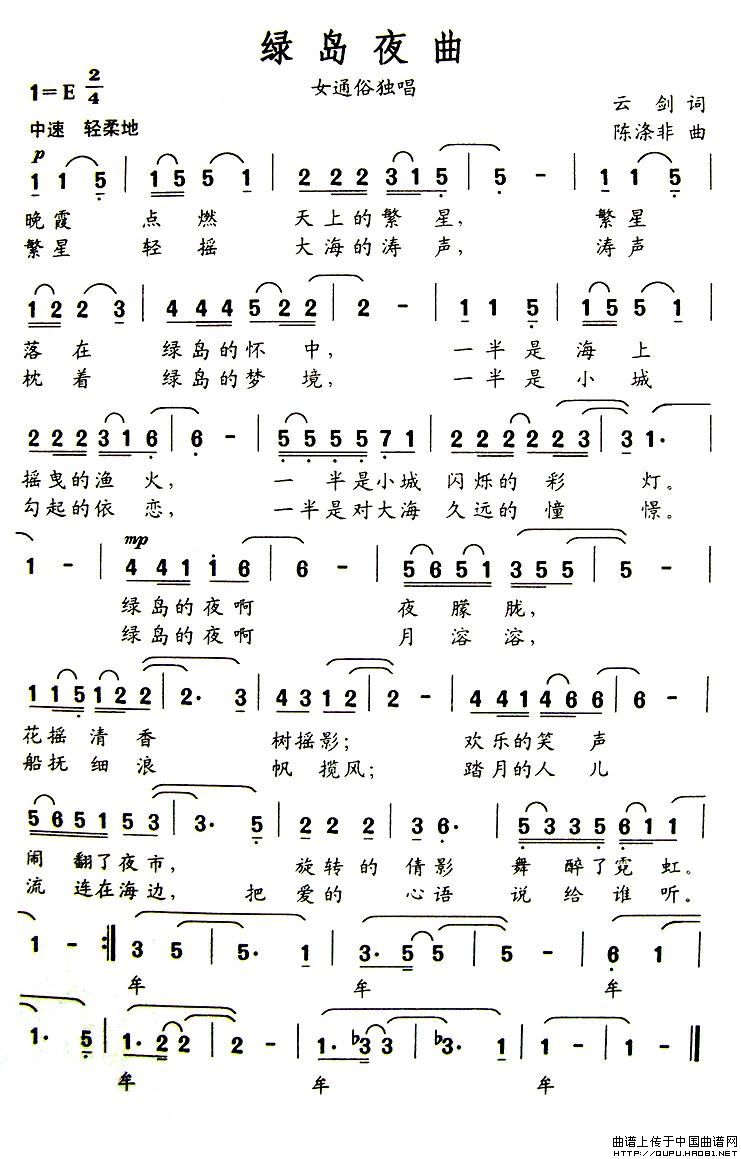 绿岛夜曲
女通俗独唱
1=E 2/4
云剑词
中速 轻柔地
陈涤非曲
p
1 1 5 | 1 5 5 1 | 2 2 2 3 1 5 | 5 - | 1 1 5 |
晚霞 点燃 天上的繁星， 繁星
繁星 轻摇 大海的涛声， 涛声
1 2 2 3 | 4 4 4 5 2 2 | 2 - | 1 1 5 | 1 5 5 1 |
落在 绿岛的怀中， 一半是海上
枕着 绿岛的梦境， 一半是小城
2 2 2 3 1 6 | 6 - | 5 5 5 5 7 1 | 2 2 2 2 2 3 | 3 1· |
摇曳的渔火， 一半是小城 闪烁的彩灯。
勾起的依恋， 一半是对大海 久远的憧憬。
mp
1 - | 4 4 1 1 6 | 6 - | 5 6 5 1 3 5 5 | 5 - |
绿岛的夜啊 夜朦胧，
绿岛的夜啊 月溶溶，
1 1 5 1 2 2 | 2· 3 | 4 3 1 2 | 2 - | 4 4 1 4 6 6 | 6 - |
花摇清香 树摇影； 欢乐的笑声
船抚细浪 帆揽风； 踏月的人儿
5 6 5 1 5 3 | 3· 5 | 2 2 2 | 3 6· | 5 3 3 5 6 1 1 |
闹翻了夜市， 旋转的倩影 舞醉了霓虹。
流连在海边， 把爱的心语 说给谁听。
1 - :‖ 3 5 | 5· 1 | 3· 5 5 | 5 - | 6 1 |
牟 牟 牟
1· 5 | 1· 2 2 | 2 - | 1· b3 3 | b3· 1 | 1 - ‖
牟 牟 牟
曲谱上传于中国曲谱网
HTTP://QUPU.HAO81.NET